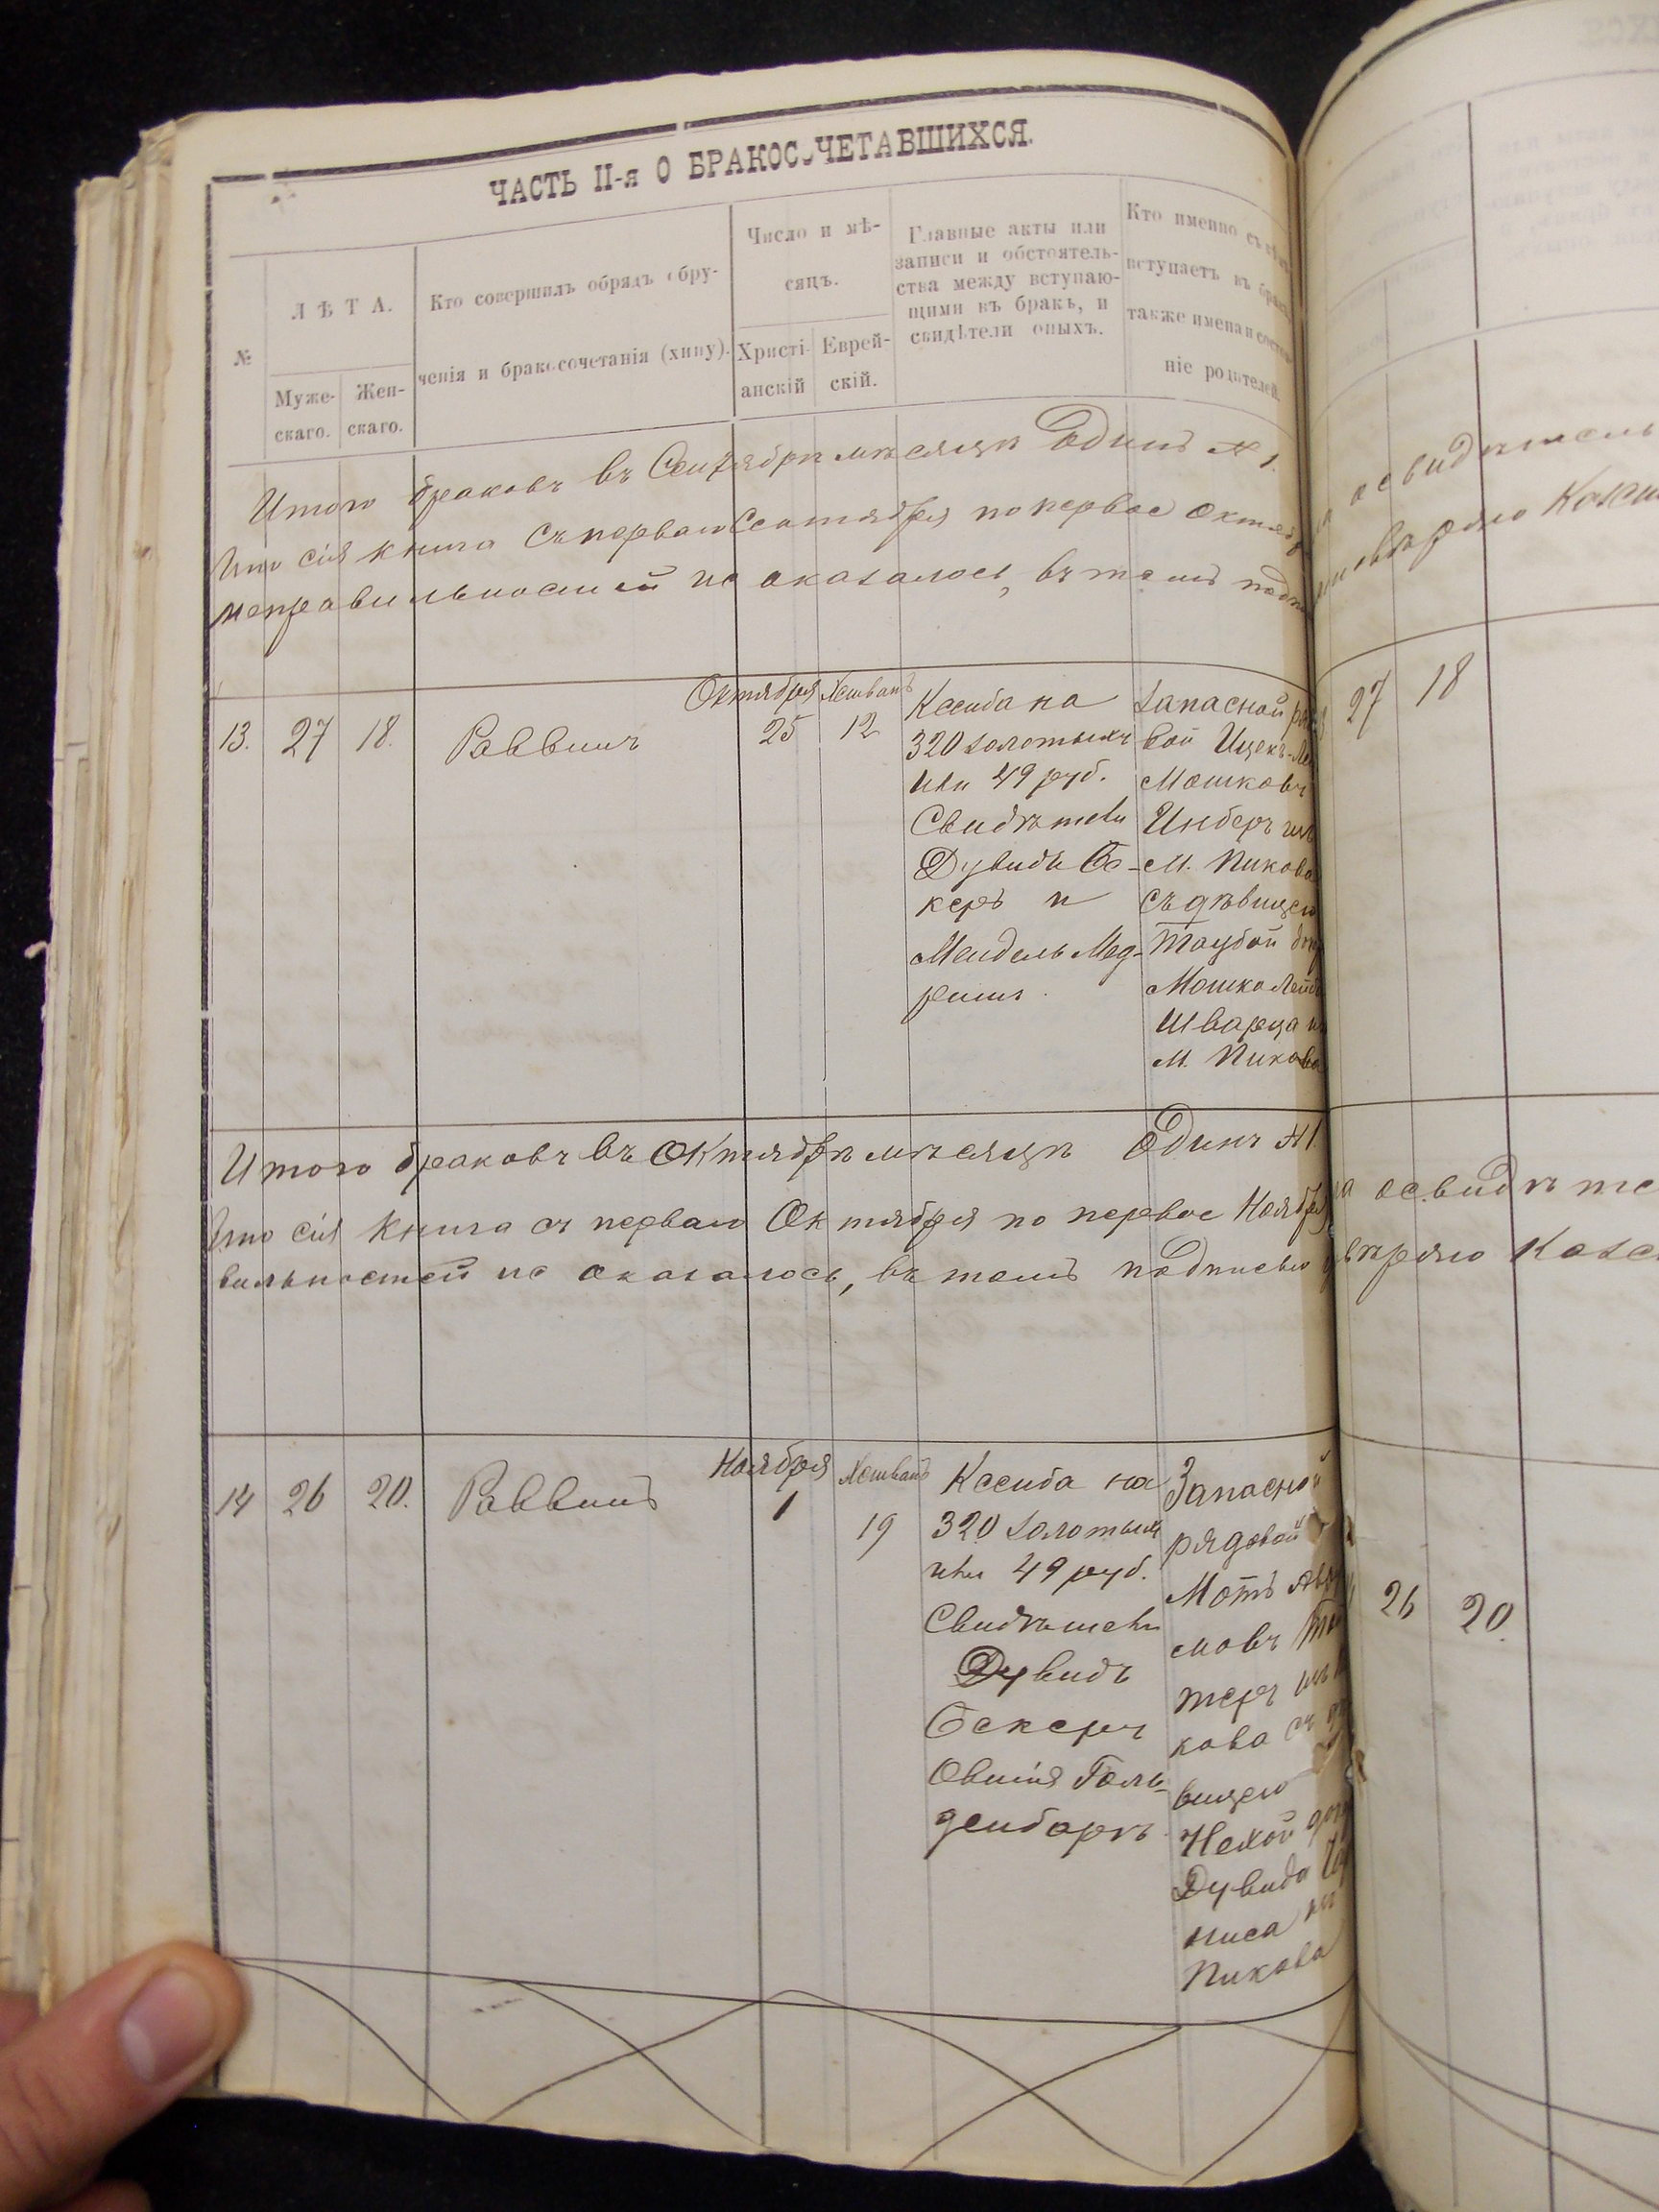 ЧАСТЬ II-я О БРАКОСОЧЕТАВШИХСЯ.
№
ЛѢТА.
Муже-
скаго.
Жен-
скаго.
Кто совершилъ обрядъ обру-
ченія и бракосочетанія (хипу).
Число и мѣ-
сяцъ.
Христі-
анскій
Еврей-
скій.
Главные акты или
записи и обстоятель-
ства между вступаю-
щими въ бракъ, и
свидѣтели оныхъ.
Кто именно съ кѣмъ
вступаетъ въ бракъ
также имена и состоя-
ніе родителей.
Итого браковъ въ Сентябрѣ мѣсяцѣ Одинъ № 1.
Что сія книга съ перваго Сентября по первое Октяб
неправильностей не оказалось, въ томъ подпи
13. 27 18. Раввинъ
Октября
25
Хешванъ
12
Ксеиба на
320 золотыхъ
или 49 руб.
Свидѣтели
Дувидъ Бе-
керъ и
Мендель Мед-
ришъ.
Запасной ря
вой Ицекъ-Ле
Мошковъ
Инберъ изъ
М. Пикова
съ дѣвицею
Таубой доч
Мошко Лейб
Шварца из
М. Пикова
Итого браковъ въ Октябрѣ мѣсяцѣ Одинъ №1
Что сія книга съ перваго Октября по первое Ноября
вильностей не оказалось, въ томъ подписью
14 26 20. Раввинъ
Ноября
1
Хешванъ
19
Ксеиба на
320 золотыхъ
или 49 руб.
Свидѣтели
Дувидъ
Бекеръ
Овшія Голь-
денбергъ
Запасной
рядовой
Мотъ Авр
мовъ
теръ изъ
кова съ дѣ
вицею
Нехой доч
Дувида
ниса из
Пикова
освидѣтель
27 18
освидѣте
вѣряю Казе
26 20.